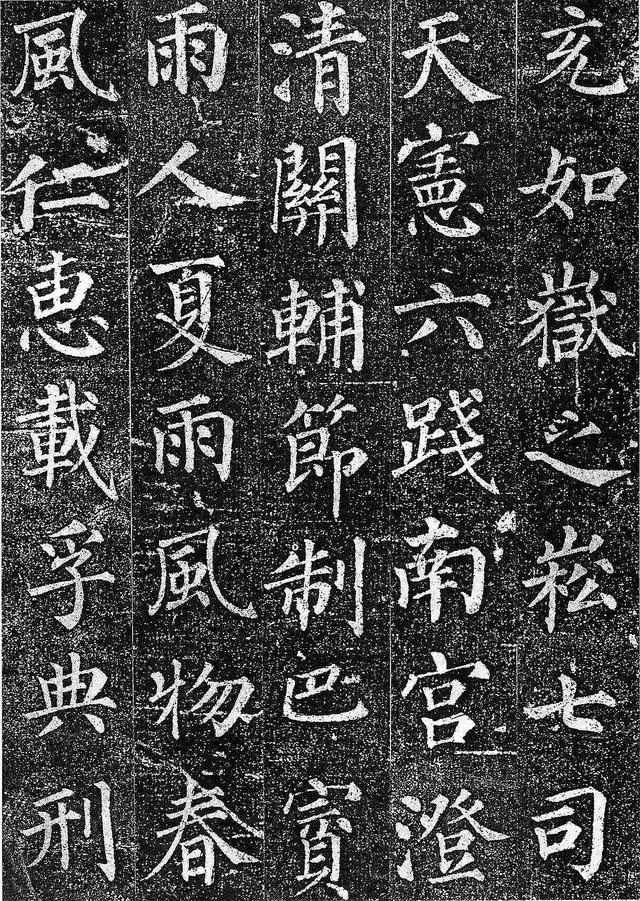 充如嶽之崧七司
天憲六踐南宫澄
清關輔節制巴賨
雨人夏雨風物春
風仁恵載孚典刑